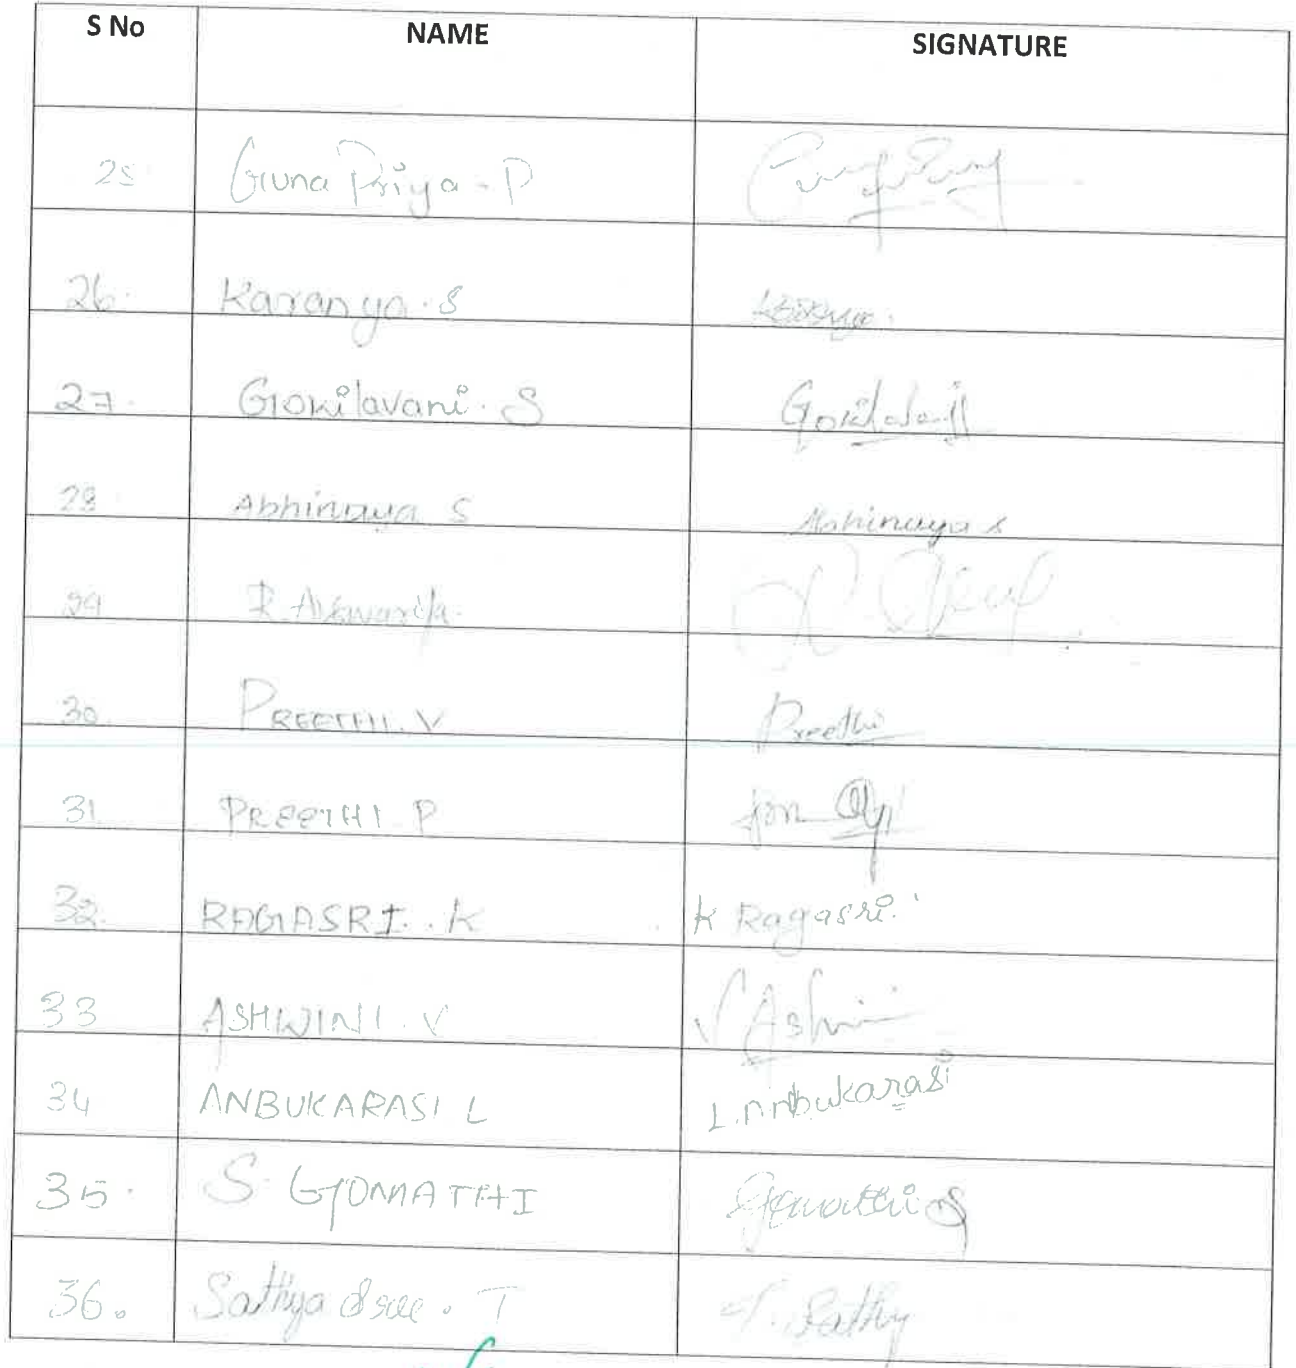 S No NAME SIGNATURE
25 Guna Priya - P
26. Karanya. S
27. Gokilavani. S
28. Abhinaya S Abhinaya S
29 R.
30 PREETHI. V Preethi
31 PREETHI P
32. RAGASRI. K K Ragasri.
33 ASHWINI. V V Ashwini
34 ANBUKARASI L L. Anbukarasi
35. S GOMATHI Gomathi S
36. Sathya Sree. T T. Sathy